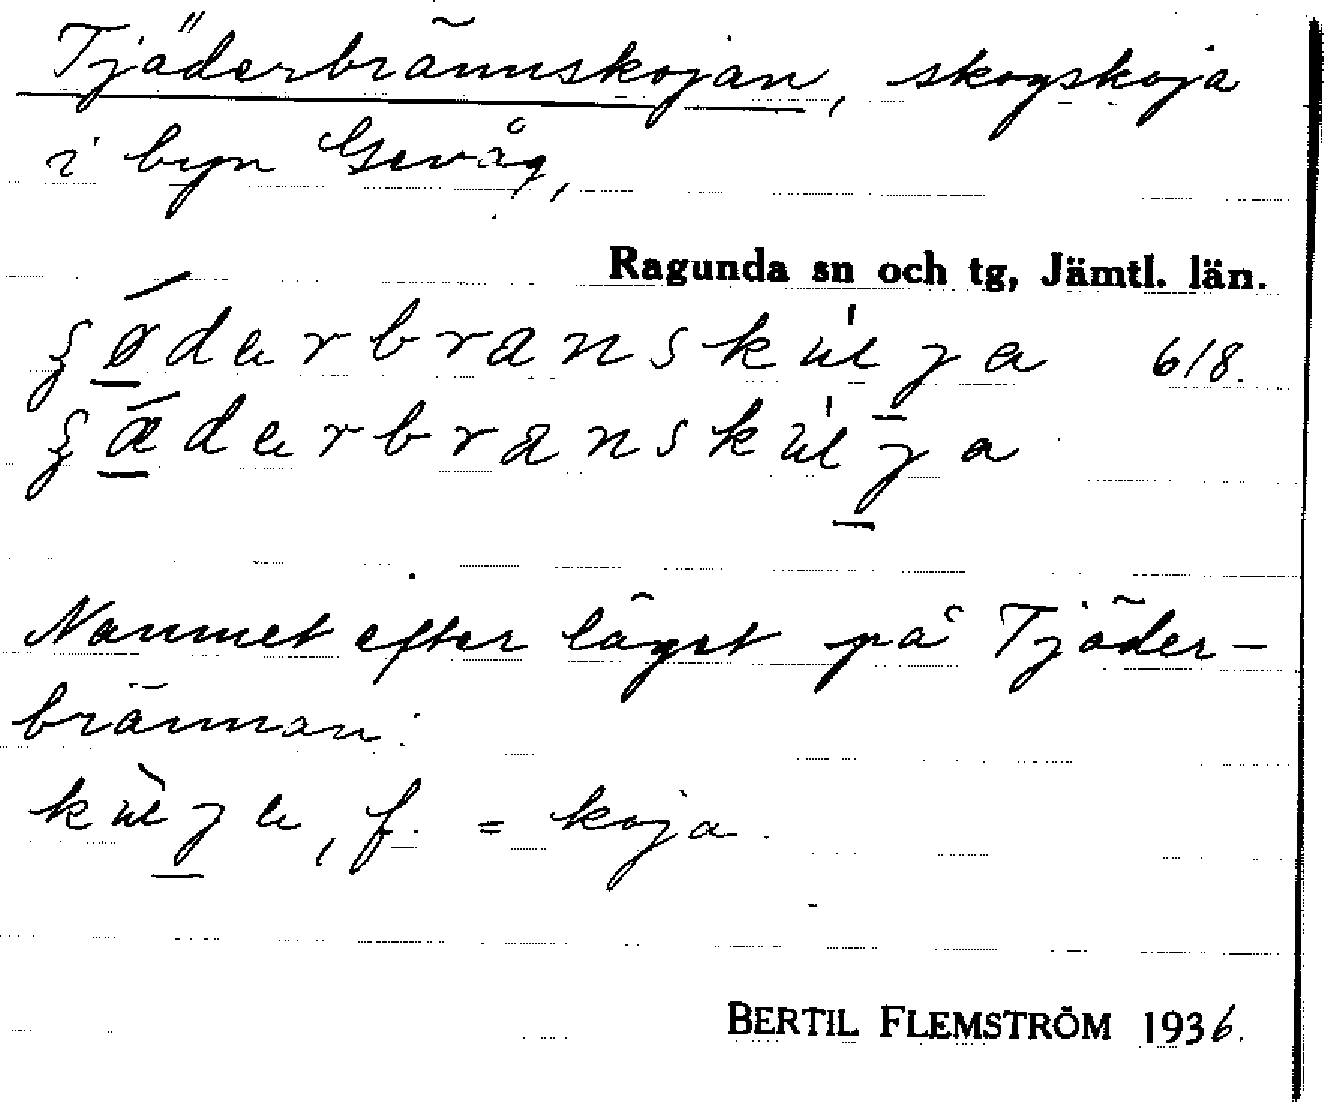 Tjäderbrännskojan, skogskoja
i byn Gevåg,
Ragunda sn och tg, Jämtl. län.
6/8.
Namnet efter läget på Tjäder-
brännan.
f. = koja.
BERTIL FLEMSTRÖM 1936.